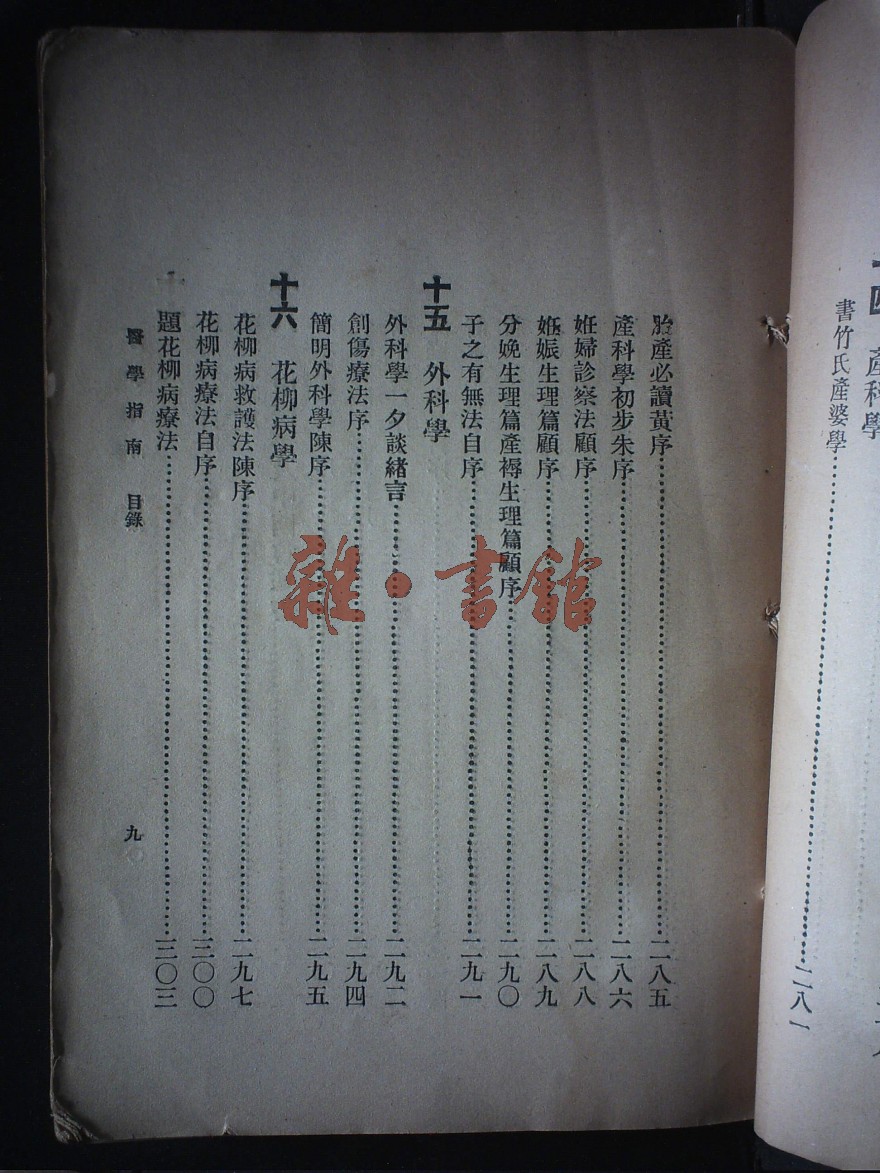 產科學
書竹氏產婆學……二八一
胎產必讀黃序……二八五
產科學初步朱序……二八六
妊婦診察法顧序……二八八
姙娠生理篇顧序……二八九
分娩生理篇產褥生理篇顧序……二九〇
子之有無法自序……二九一
十五 外科學
外科學一夕談緒言……二九二
創傷療法序……二九四
簡明外科學陳序……二九五
十六 花柳病學
花柳病救護法陳序……二九七
花柳病療法自序……三〇〇
題花柳病療法……三〇三
醫學指南 目錄 九
雜·書館